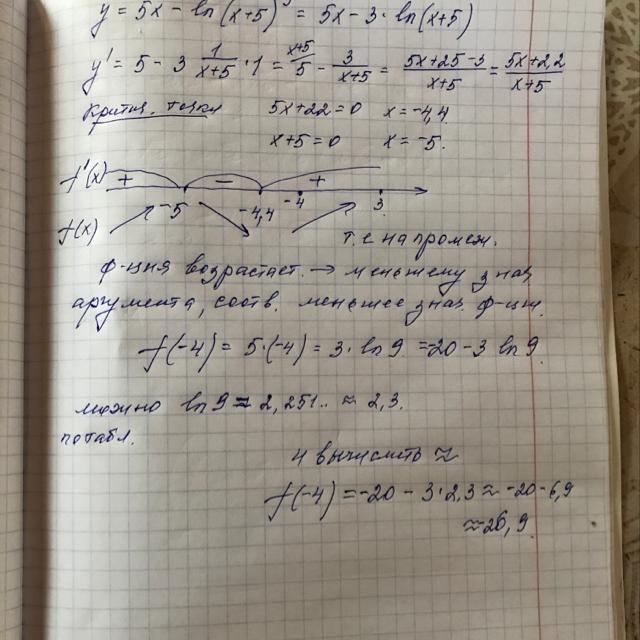 y = 5x - ln(x+5)³ = 5x - 3·ln(x+5)
y' = 5 - 3 1/(x+5) · 1 = 5 - 3/(x+5) = (5x+25-3)/(x+5) = (5x+22)/(x+5)
Критич. точки 5x+22=0 x=-4,4
x+5=0 x=-5.
f'(x) + - +
-5 -4,4 -4 3
f(x) т.е на промеж.
ф-ция возрастает. → меньшему знач
аргумента, соотв. меньшее знач. ф-ции.
f(-4) = 5·(-4) = 3·ln9 = -20 - 3 ln9.
можно ln9 ≈ 2,251.. ≈ 2,3.
по табл.
и вычислить ≈
f(-4) = -20 - 3·2,3 ≈ -20-6,9
≈ -26,9.